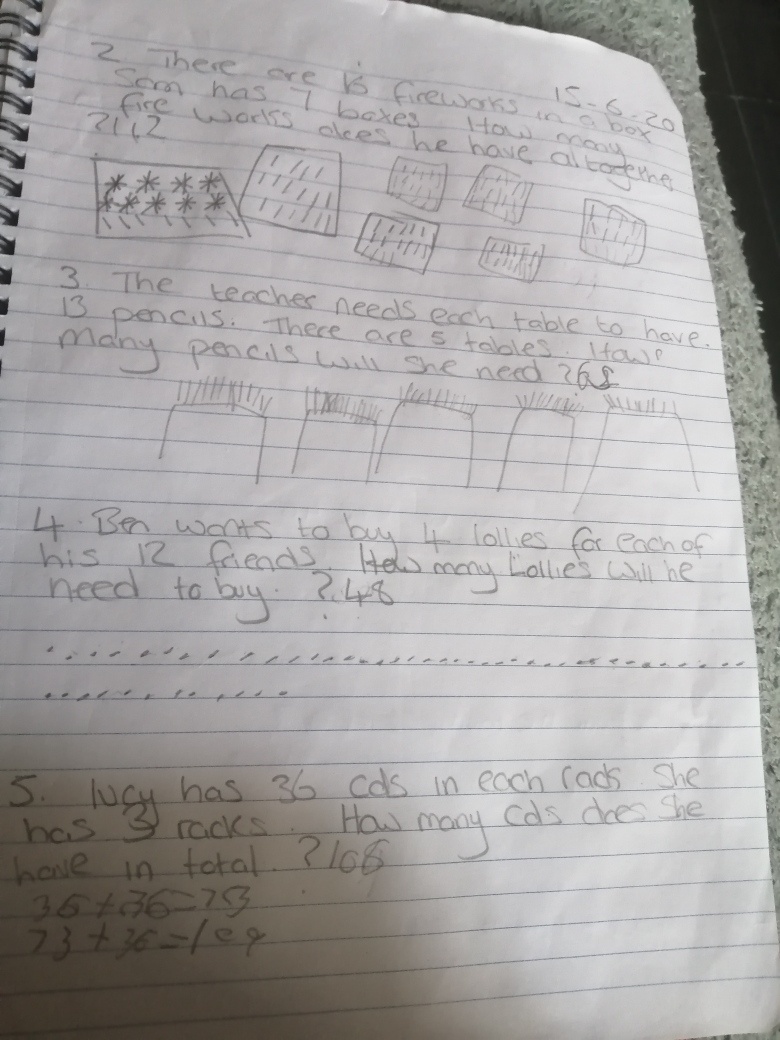 15-6-20
2. There are 16 fireworks in a box
Sam has 7 boxes. How many
fire works does he have altogether
?112
3. The teacher needs each table to have.
13 pencils. There are 5 tables. How
many pencils will she need ?
4. Ben wants to buy 4 lollies for each of
his 12 friends. How many Lollies will he
need to buy. ?48
5. lucy has 36 cds in each rack She
has 3 racks. How many cds does she
have in total. ?108
36+36=73
73+36=109